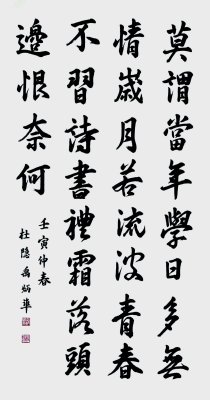 莫謂當年學日多無
情歲月若流波青春
不習詩書禮霜落頭
邊恨奈何
壬寅仲春
杜隱禹炳